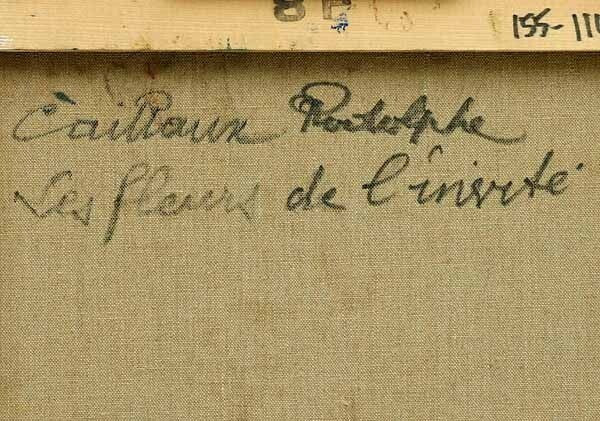 8F
155-111
Caillaux Rodolphe
Les fleurs de l'invité